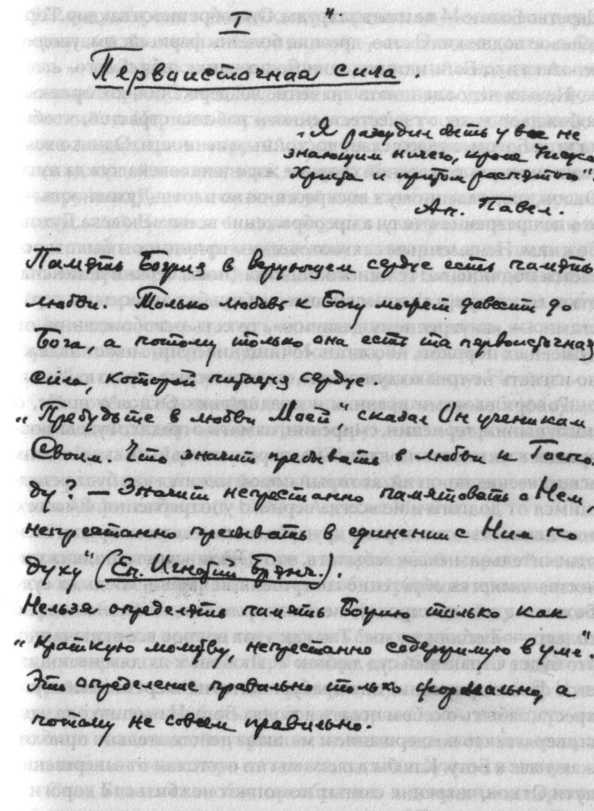 I 4.
Первоисточная сила.
"Я рассудил быть у вас не
знающим ничего, кроме Иисуса
Христа и притом распятого".
Ап. Павел.
Память Божия в верующем сердце есть память
любви. Только любовь к Богу может довести до
Бога, а потому только она есть та первоисточная
сила, которой питается сердце.
"Пребудьте в любви Моей", сказал Он ученикам
Своим. Что значит пребывать в любви к Госпо-
ду? — Значит непрестанно памятовать о Нем,
непрестанно пребывать в единении с Ним по
духу" (Еп. Игнатий Брянч.).
Нельзя определять память Божию только как
"краткую молитву, непрестанно содержимую в уме".
Это определение правильно только формально, а
потому не совсем правильно.